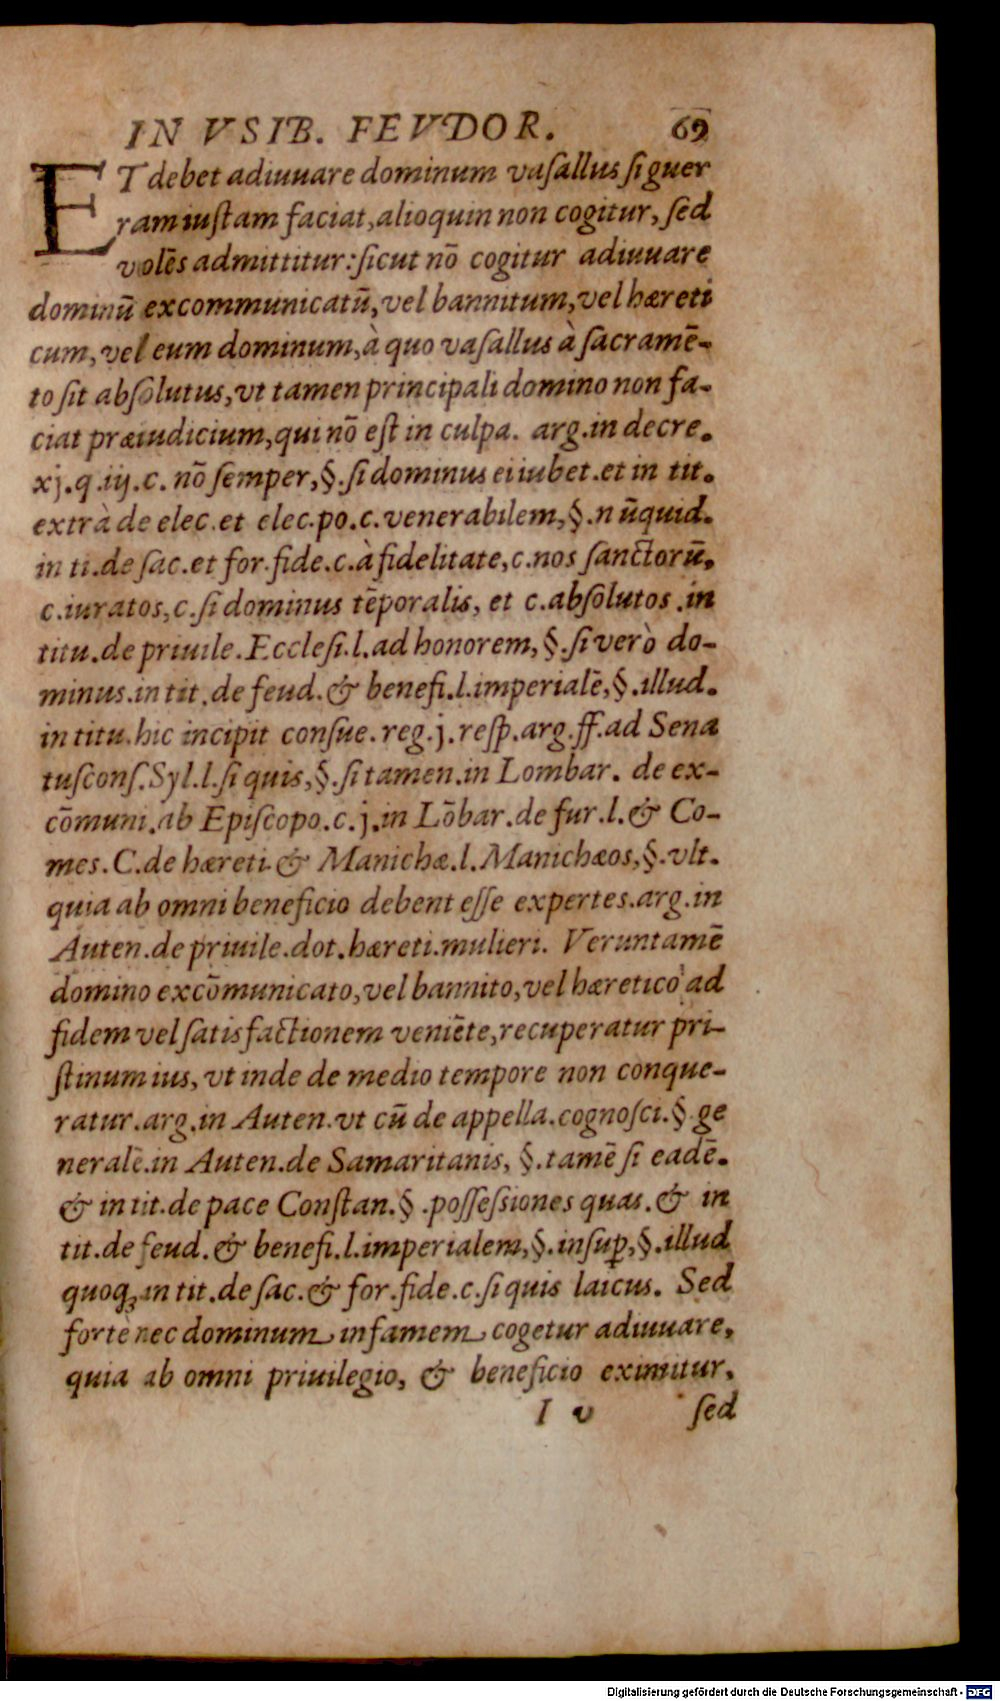 IN VSIB. FEVDOR. 69
ET debet adiuuare dominum vaſallus ſi guer
ram iuſtam faciat, alioquin non cogitur, ſed
volẽs admittitur: ſicut nõ cogitur adiuuare
dominũ excommunicatũ, vel bannitum, vel hæreti
cum, vel eum dominum, à quo vaſallus à ſacramẽ-
to ſit abſolutus, vt tamen principali domino non fa-
ciat præiudicium, qui nõ eſt in culpa. arg. in decre.
xj. q. iij. c. nõ ſemper, §. ſi dominus ei iubet. et in tit.
extrà de elec. et elec. po. c. venerabilem, §. nũquid.
in ti. de ſac. et for. fide. c. à fidelitate, c. nos ſanctorũ,
c. iuratos, c. ſi dominus tẽporalis, et c. abſolutos. in
titu. de priuile. Eccleſi. l. ad honorem, §. ſi verò do-
minus. in tit. de feud. & benefi. l. imperialẽ, §. illud.
in titu. hic incipit conſue. reg. j. reſp. arg. ff. ad Sena
tuſconſ. Syl. l. ſi quis, §. ſi tamen. in Lombar. de ex-
cõmuni. ab Epiſcopo. c. j. in Lõbar. de fur. l. & Co-
mes. C. de hæreti. & Manichæ. l. Manichæos, §. vlt.
quia ab omni beneficio debent eſſe expertes. arg. in
Auten. de priuile. dot. hæreti. mulieri. Veruntamẽ
domino excõmunicato, vel bannito, vel hæretico ad
fidem vel ſatisfactionem veniẽte, recuperatur pri-
ſtinum ius, vt inde de medio tempore non conque-
ratur. arg. in Auten. vt cũ de appella. cognoſci. § ge
neralẽ. in Auten. de Samaritanis, §. tamẽ ſi eadẽ.
& in tit. de pace Conſtan. §. poſſeſsiones quas. & in
tit. de feud. & benefi. l. imperialem, §. inſuꝑ, §. illud
quoqꝫ in tit. de ſac. & for. fide. c. ſi quis laicus. Sed
fortè nec dominum infamem cogetur adiuuare,
quia ab omni priuilegio, & beneficio eximitur,
I v ſed
Digitalisierung gefördert durch die Deutsche Forschungsgemeinschaft - DFG